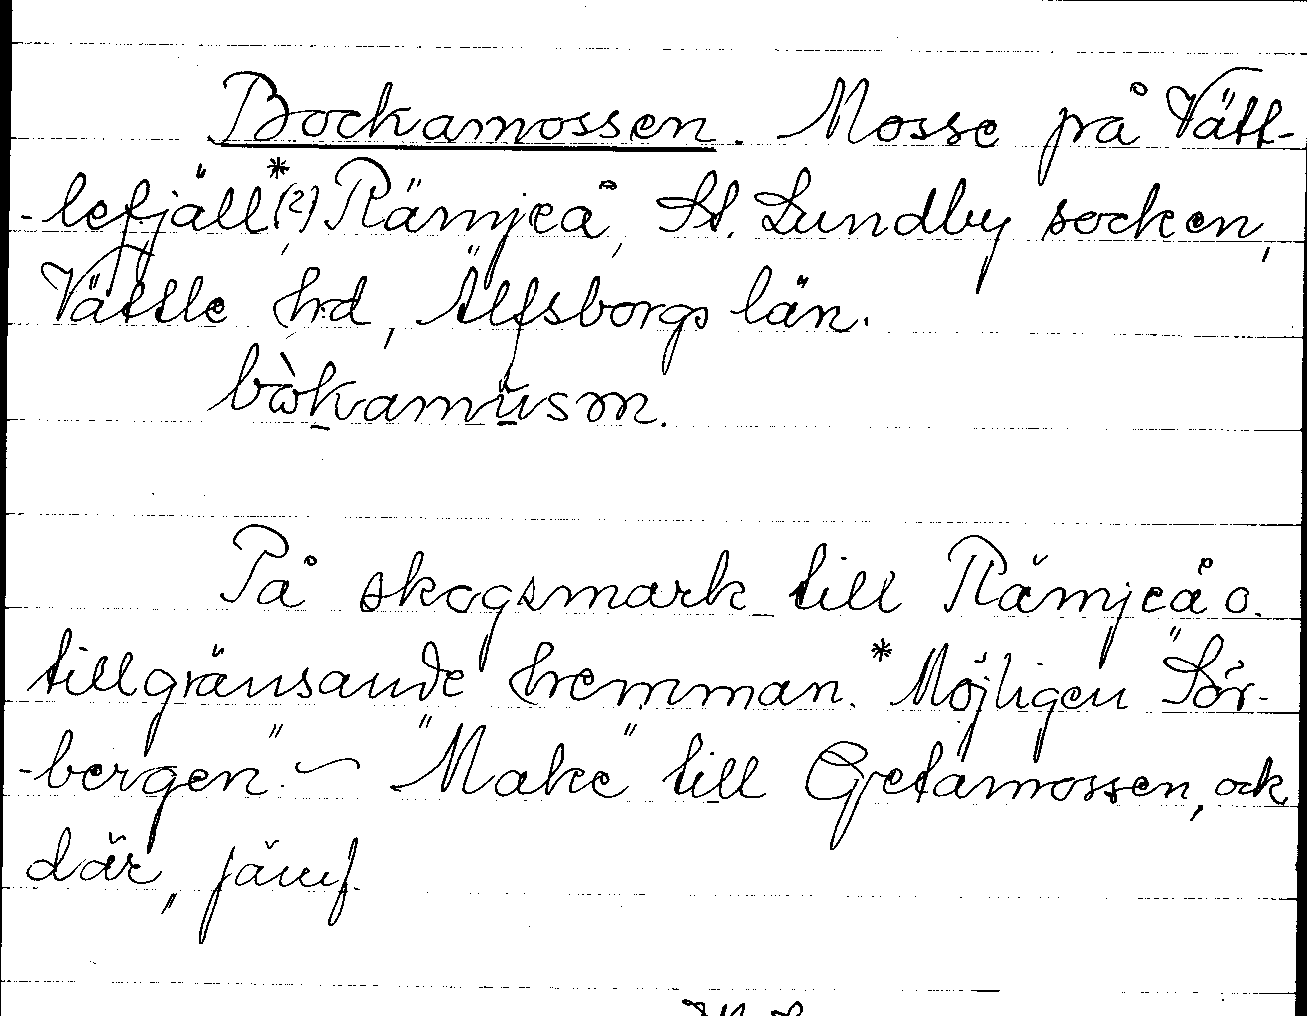 Bockamossen. Mosse på Vätt-
-lefjäll*(?) Rämjeå, St. Lundby socken,
Vättle hd, Älfsborgs län.
bὼkamüsm.
På skogsmark till Rämjeå o.
tillgränsande hemman. *Möjligen "Sör-
-bergen". ~ "Make" till Getamossen, ock
där, jämf.